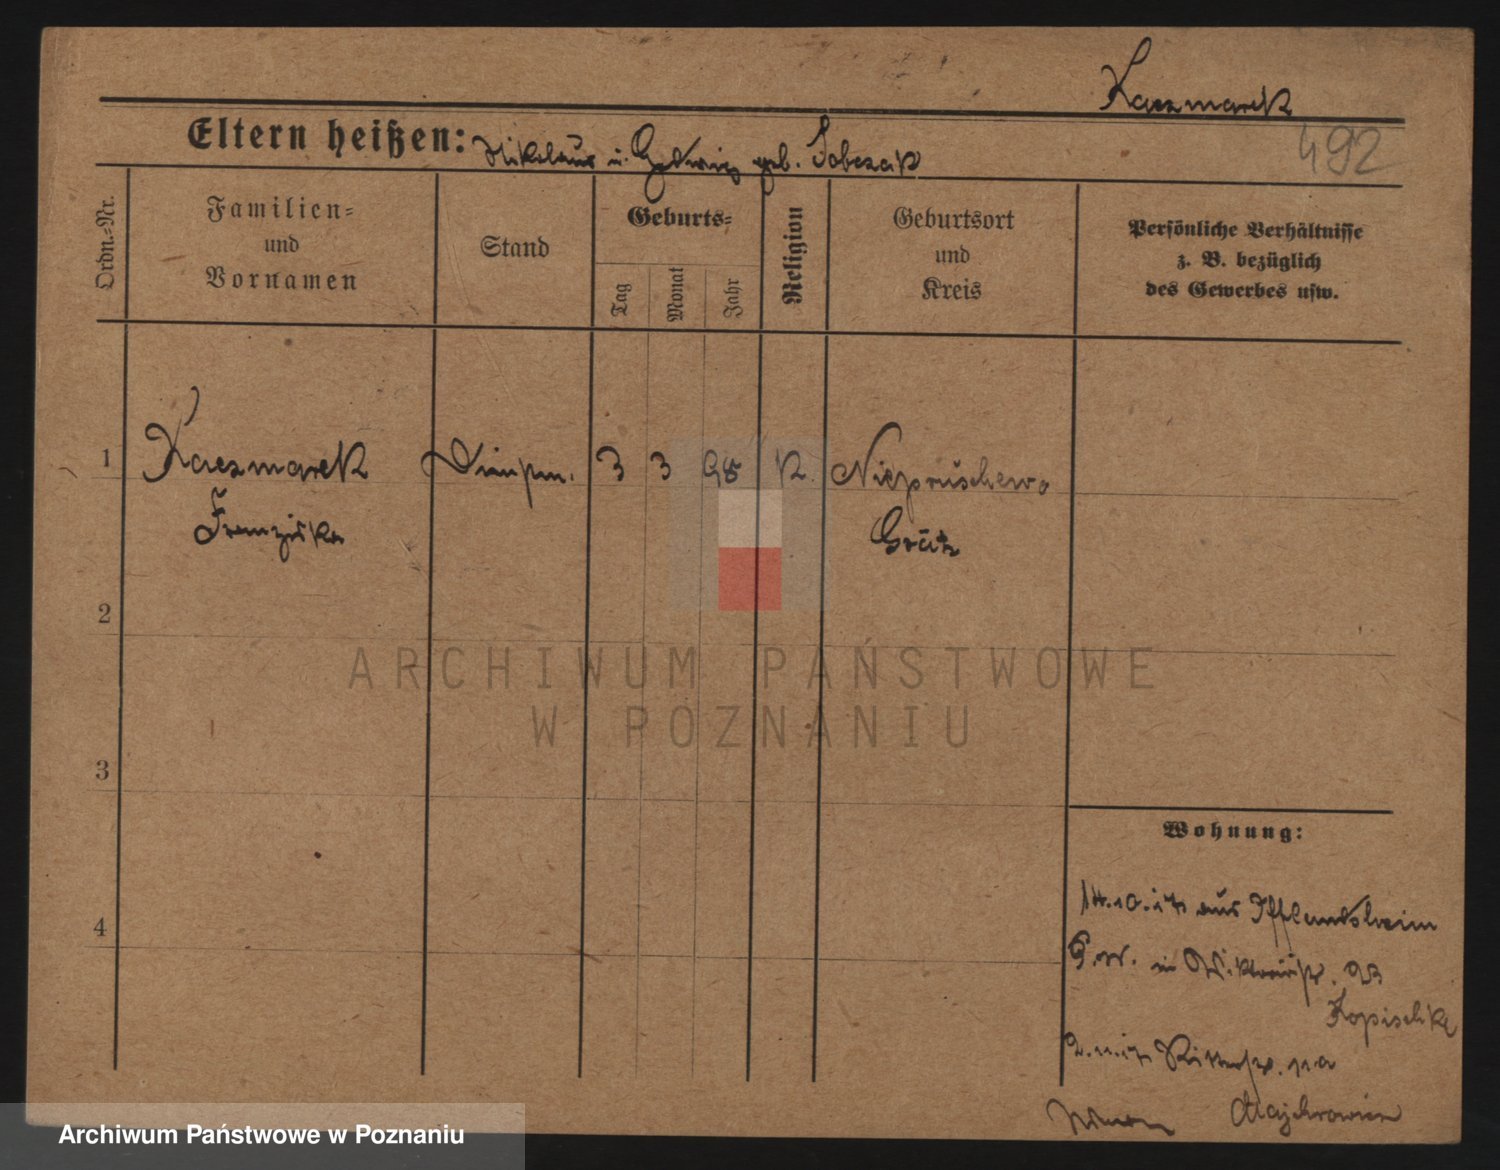 Kaczmarek
492
Eltern heißen: Nikolaus u. Hedwig geb. Sobczak
Ordn.-Nr.
Familien-
und
Vornamen
Stand
Geburts-
Tag
Monat
Jahr
Religion
Geburtsort
und
Kreis
Persönliche Verhältnisse
z. B. bezüglich
des Gewerbes usw.
1 Kaczmarek Dienstm. 3 3 98 K. Niepruschewo
Franziska Grätz
2
3
4
Wohnung:
14.10.17 aus Ifflandsheim
in Viktoriastr. 23
Kopischke
2.11.17 Ritterstr. 11a
Majchrowicz
ARCHIWUM PAŃSTWOWE
W POZNANIU
Archiwum Państwowe w Poznaniu